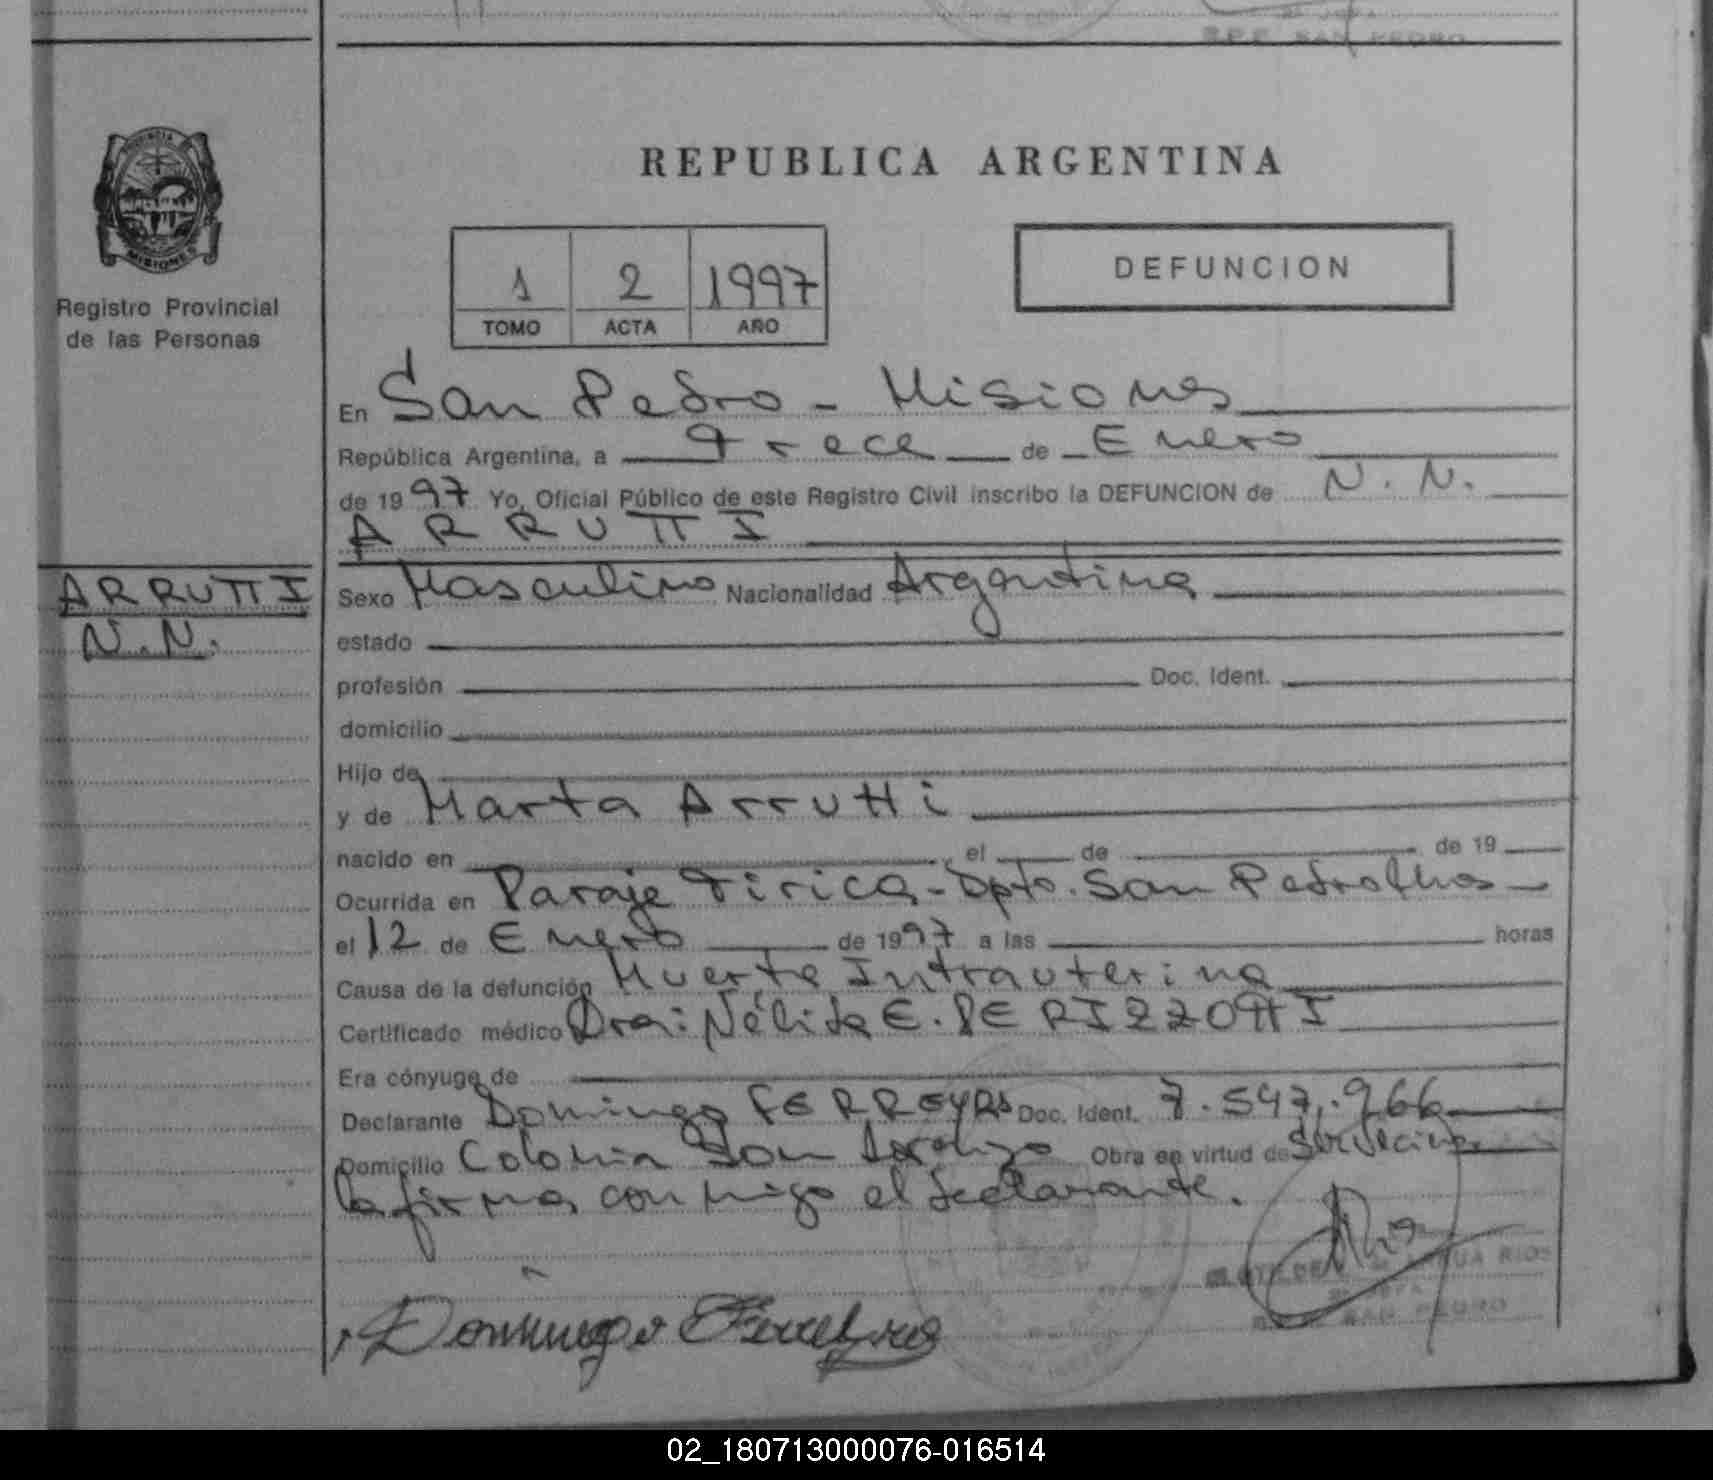 S.P.F. SAN PEDRO
PROVINCIA DE
MISIONES
Registro Provincial
de las Personas
REPUBLICA ARGENTINA
1 2 1997
TOMO ACTA AÑO
DEFUNCION
En San Pedro - Misiones
República Argentina, a Trece de Enero
de 1997 Yo, Oficial Público de este Registro Civil inscribo la DEFUNCION de N. N.
ARRUTTI
ARRUTTI
N.N.
Sexo Masculino Nacionalidad Argentina
estado
profesión Doc. Ident.
domicilio
Hijo de
y de Marta Arrutti
nacido en , el de de 19
Ocurrida en Paraje Tirica - Dpto. San Pedro
el 12 de Enero de 1997 a las horas
Causa de la defunción Muerte Intrauterina
Certificado médico Dra: Nélida E. PERIZZOTTI
Era cónyuge de
Declarante Domingo FERREYRA Doc. Ident. 7.547.966
Domicilio Colonia San Obra en virtud de
la firma conmigo el declarante.
RIOS
SAN PEDRO
Domingo Ferreyra
02_180713000076-016514